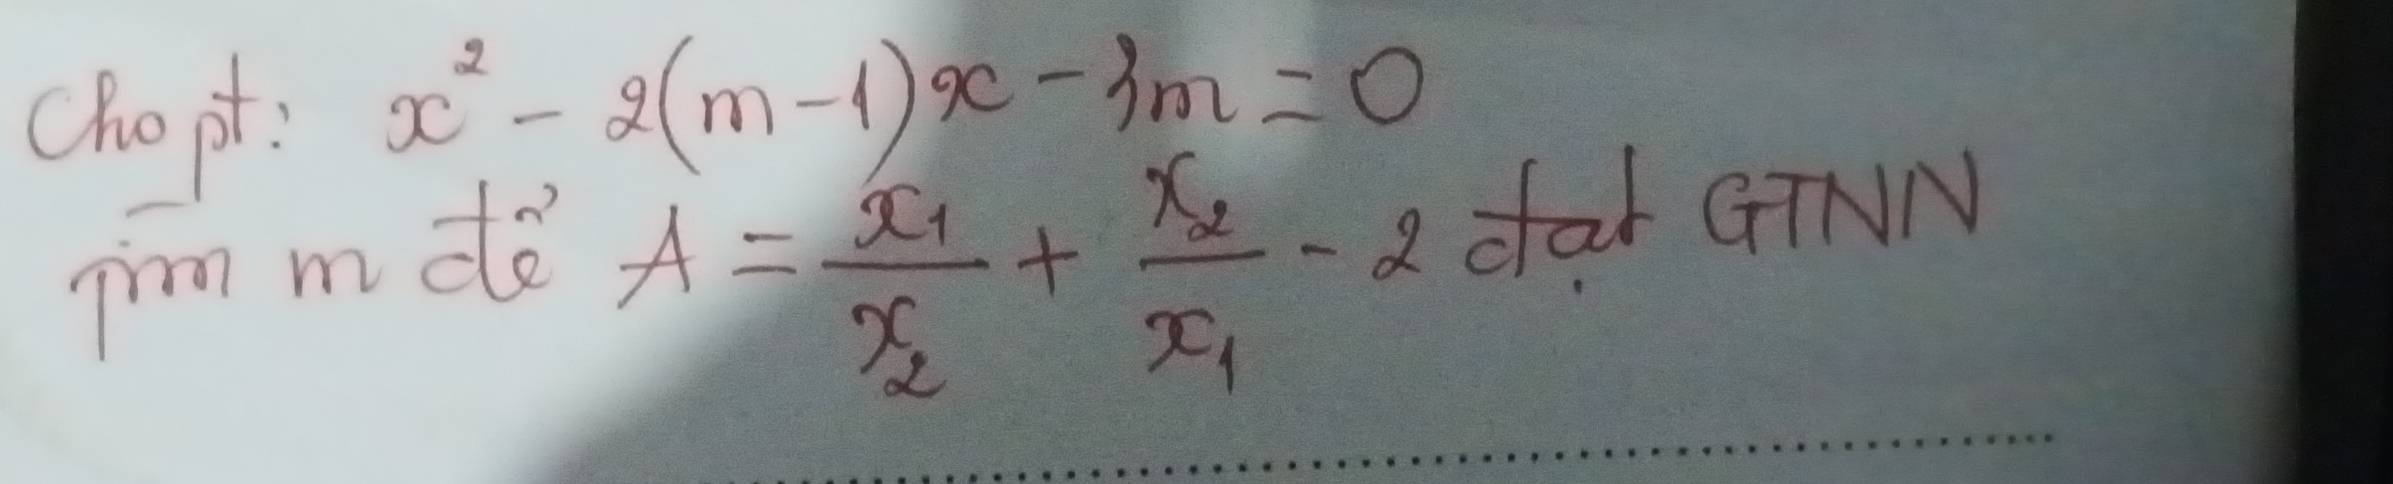 Cho pt: x² - 2(m-1)x - 3m = 0
Tìm m để A = x₁/x₂ + x₂/x₁ - 2 đạt GTNN